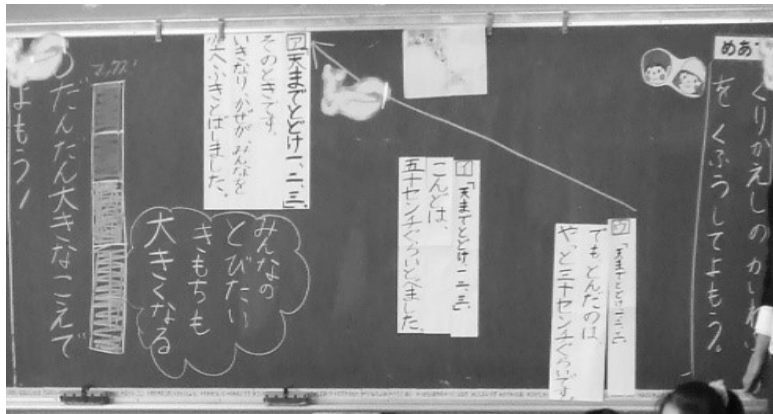 めあて
くりかえしのかいわ
をくふうしてよもう。
ウ「天までとどけ、一、二、三。」
でもとんだのは、
やっと三十センチぐらいです。
イ「天までとどけ、一、二、三。」
こんどは、
五十センチぐらいとべました。
ア「天までとどけ、一、二、三。」
そのときです。
いきなり、かぜが、みんなを
空へふきとばしました。
みんなの
とびたい
きもちも
大きくなる
マックス
だんだん大きなこえで
よもう!